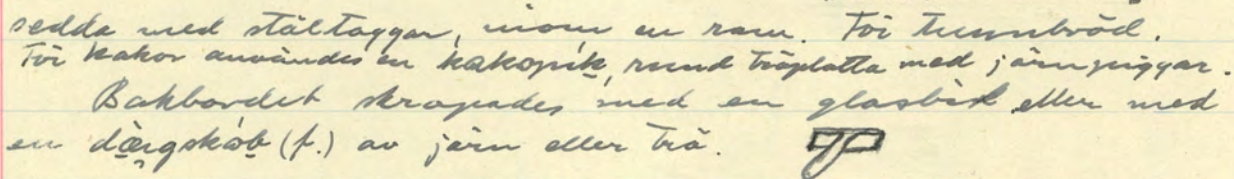 sedda med ståltaggar, inom en ram. För tunnbröd.
För kakor användes en kakopik, rund träplatta med järnpiggar.
Bakbordet skrapades med en glasbit eller med
en dærgskob (f.) av järn eller trä.